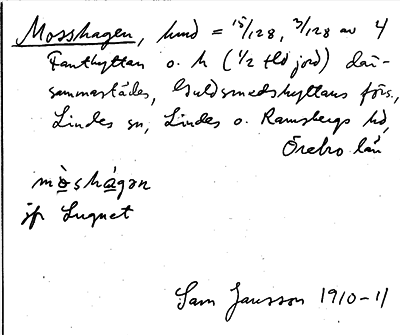 Mosshagen, hmd = 15/128, 3/128 av 4
Fanthyttan o. h (1/2 tld jord) där-
sammastädes, Guldsmedshyttans förs.,
Lindes sn, Lindes o. Ramsbergs hd,
Örebro län
mòshágən
jfr Lugnet
Sam Jansson 1910-11